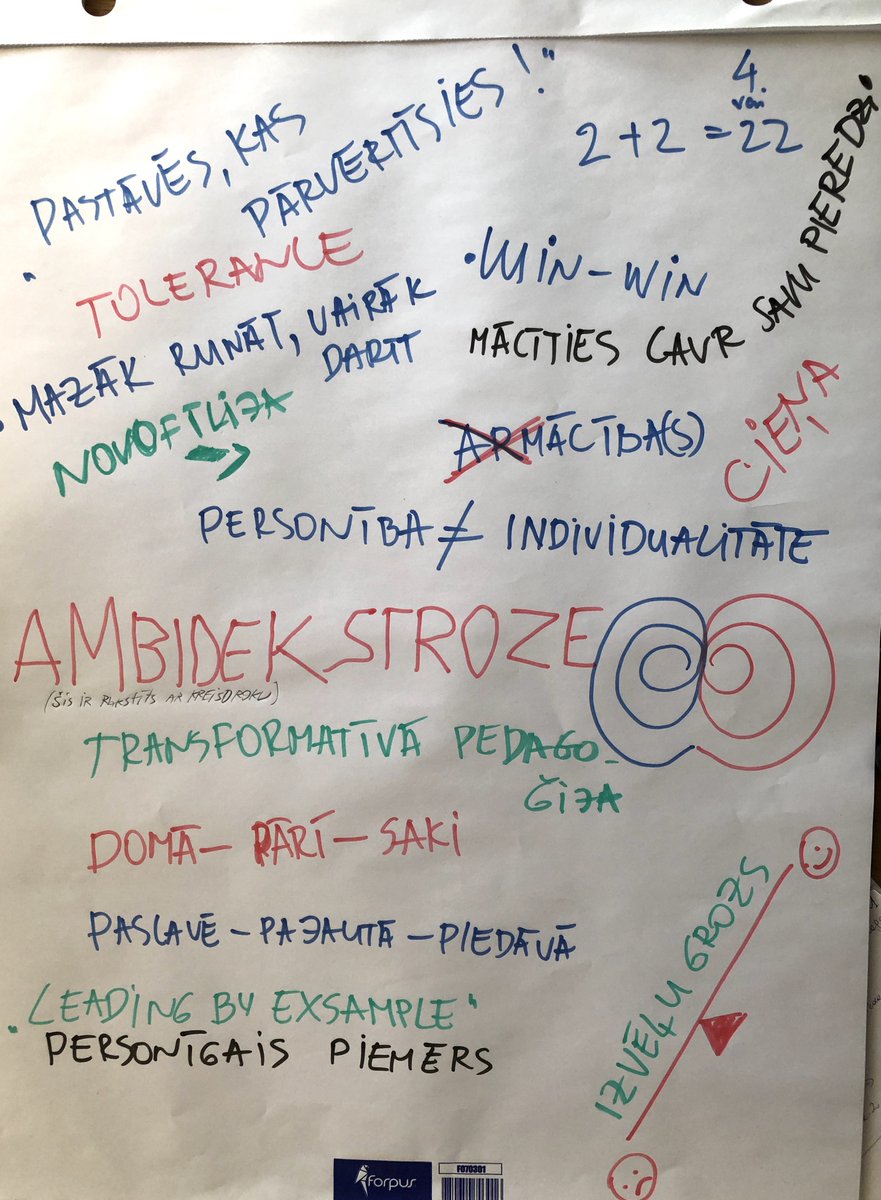 "PASTĀVĒS, KAS
PĀRVĒRTĪSIES!"
4.
vai
2+2=22
TOLERANCE
• WIN-WIN
• MAZĀK RUNĀT, VAIRĀK
DARĪT
MĀCĪTIES CAUR SAVU PIEREDZI
NOVOFILIJA
→
ARMĀCĪBA(S)
CIEŅA
PERSONĪBA ≠ INDIVIDUALITĀTE
AMBIDEKSTROZE
(ŠIS IR RAKSTĪTS AR KREISO ROKU)
TRANSFORMATĪVĀ PEDAGO-
ĢIJA
DOMĀ – PĀRĪ – SAKI
PASLAVĒ – PAJAUTĀ – PIEDĀVĀ
IZVĒĻU GROZS
"LEADING BY EXSAMPLE"
PERSONĪGAIS PIEMĒRS
forpus
FO70301